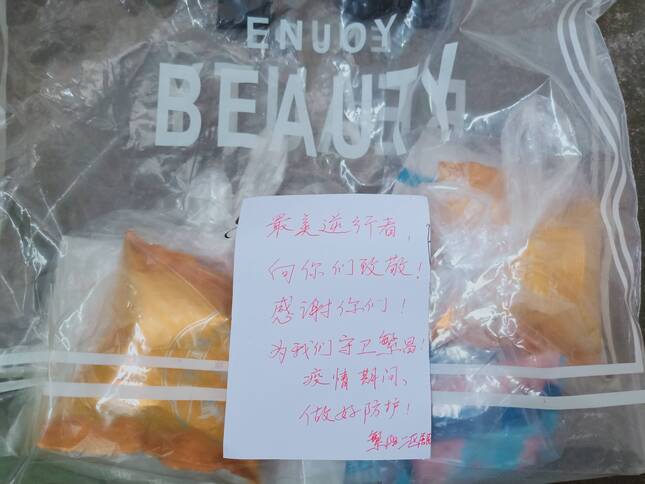 ENJOY
BEAUTY
最美逆行者，
向你们致敬！
感谢你们！
为我们守卫繁昌！
疫情期间、
做好防护！